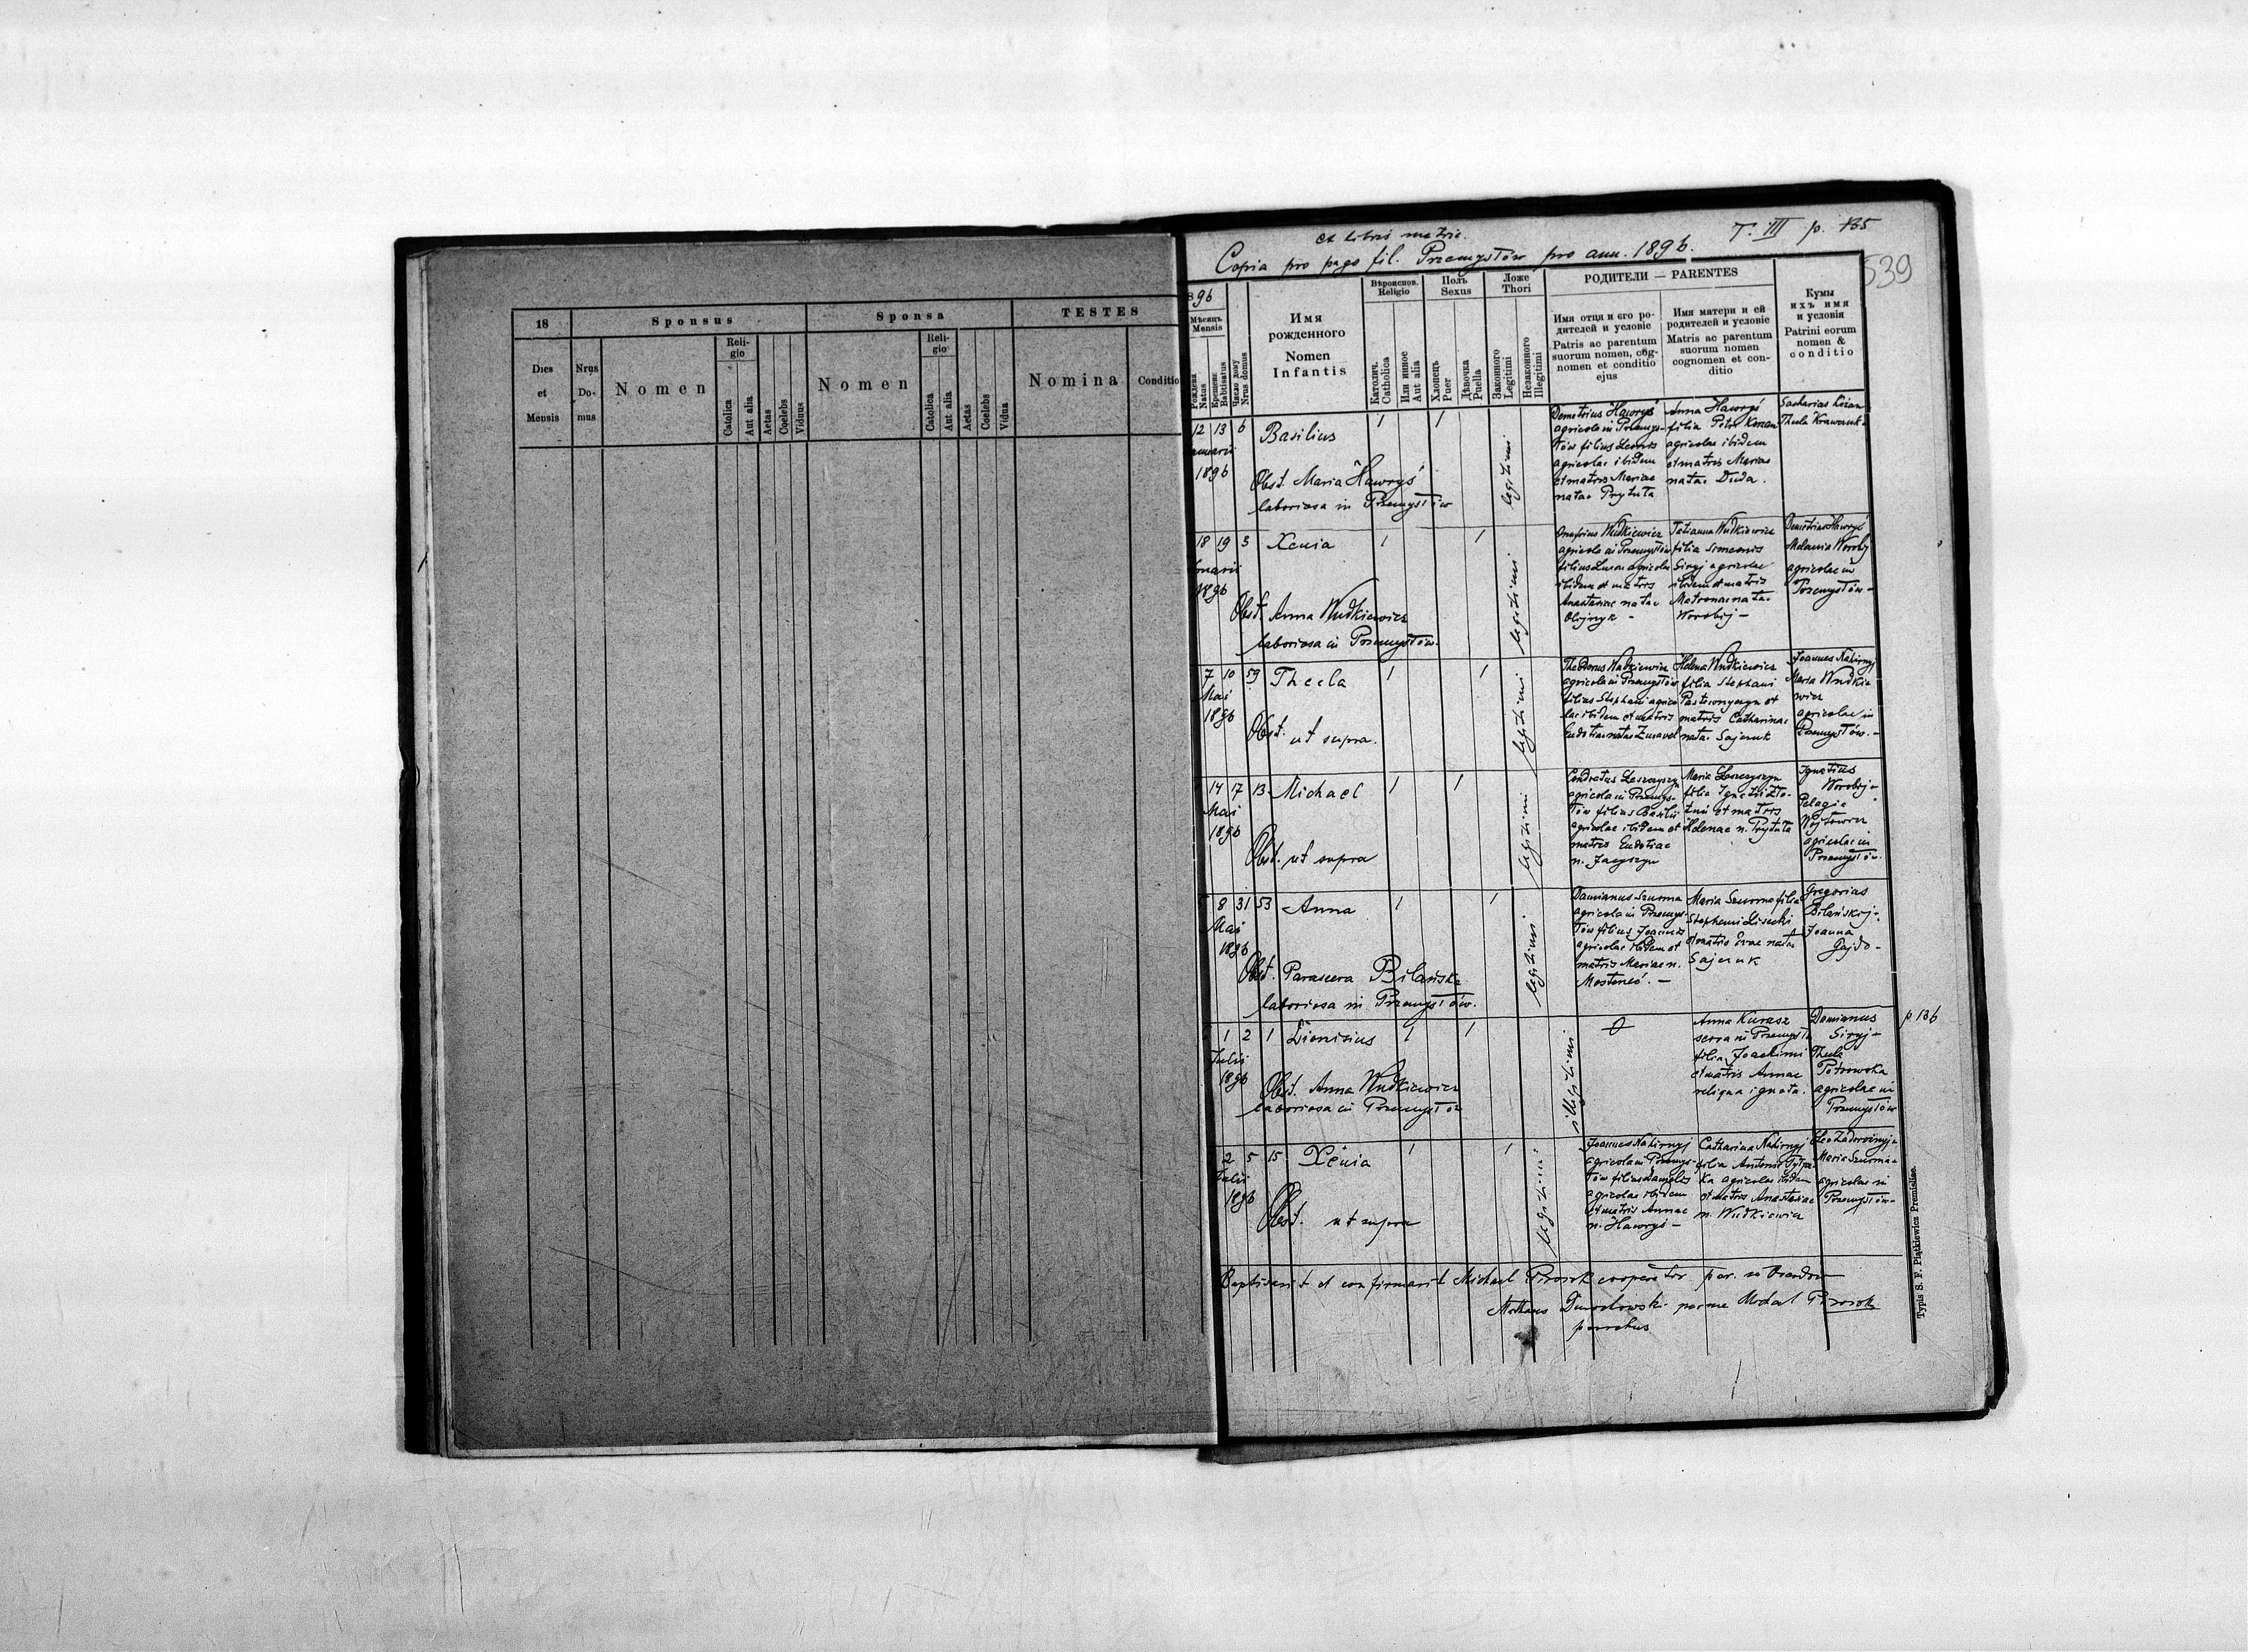 18
Sponsus
Sponsa
TESTES
Dies
et
Mensis
Nrus
Do-
mus
Nomen
Reli-
gio
Catolica
Aut alia
Aetas
Coelebs
Viduus
Nomen
Reli-
gio
Catolica
Aut alia
Aetas
Coelebs
Vidua
Nomina
Conditio
ex libris metric.
T. III p. 135
Copia pro pago fil. Przemysłów pro ann. 1896.
539
896
Мѣсяць
Mensis
Рождена
Natus
Крещене
Babtisatus
Число дому
Nrus domus
Имя
рожденного
Nomen
Infantis
Вѣроиспов.
Religio
Католич.
Catholica
Или инное
Aut alia
Полъ
Sexus
Хлопець
Puer
Дѣвочка
Puella
Ложе
Thori
Законного
Legitimi
Незаконного
Illegitimi
РОДИТЕЛИ — PARENTES
Имя отця и єго ро-
дителей и условіе
Patris ac parentum
suorum nomen, cog-
nomen et conditio
ejus
Имя матери и ей
родителей и условіе
Matris ac parentum
suorum nomen
cognomen et con-
ditio
Кумы
ихъ имя
и условія
Patrini eorum
nomen &
conditio
12 13 6 Basilius 1 1
anuarii
1896
Obst. Maria Hawryś
laboriosa in Przemysłów
legitimi
Demetrius Hawryś
agricola in Przemys-
łów filius Leonis
agricolae ibidem
et matris Mariae
natae Prytuła
Anna Hawryś
filia Petri Kozan
agricolae ibidem
et matris Mariae
natae Duda.
Sacharias Kozan
Thecla Krawczuk
18 19 3 Xenia 1 1
1896
Obst. Anna Wudkiewicz
laboriosa in Przemysłów.
legitimi
Onufrius Wudkiewicz
agricola in Przemysłów
filius Lucae agricolae
ibidem et matris
Anastasiae natae
Olijnyk -
Tatianna Wudkiewicz
filia Simeonis
Siryj agricolae
ibidem et matris
Matronae natae
Worobij -
Demetrius Hawryś
Melania Worobij
agricolae in
Przemysłów -
7 10 59 Thecla 1 1
Mai
1896
Obst. ut supra.
legitimi
Theodorus Wudkiewicz
agricola in Przemysłów
filius Stephani agrico
lae ibidem et matris
Eudotiae natae Zurawel
Helena Wudkiewicz
filia Stephani
matris Catharinae
natae Sajczuk
Joannes Nahirnyj
Maria Wudkie
wicz
agricolae in
Przemysłów. -
14 17 13 Michael 1 1
Mai
1896
Obst. ut supra
legitimi
Condratus Leszczyszyn
agricola in Przemys-
łów filius Basilii
agricolae ibidem et
matris Eudotiae
n. Jacyszyn
Maria Leszczyszyn
et matris
Helenae n. Prytuła
Ignatius
Worobij -
Pelagia
Wójtowicz
agricolae in
Przemysłów.
8 31 53 Anna 1 1
Mai
1896
Obst. Parascева Bilańska
laboriosa in Przemysłów.
legitimi
Damianus Szurma
agricola in Przemys-
łów filius Joannis
agricolae ibidem et
matris Mariae n.
Maria Szurma filia
Stephani Lisecki
et matris Evae natae
Sajczuk
Gregorius
Bilańskij -
Joanna
Gajda -
1 2 1 Dionisius 1 1
Julii
1896
Obst. Anna Wudkiewicz
laboriosa in Przemysłów
illegitimi
Anna Kurasz
serva in Przemysłów
filia Joachimi
et matris Annae
reliqua ignota.
Damianus
Siryj -
Thecla
Potrowska
agricolae in
Przemysłów
p 136
2 5 15 Xenia 1 1
Julii
1896
Obst. ut supra
legitimi
Joannes Nahirnyj
agricola in Przemys-
łów filius Danielis
agricolae ibidem
et matris Annae
n. Hawryś -
Catharina Nahirnyj
filia Antonii
agricolae ibidem
et matris Anastasiae
n. Wudkiewicz
Leo Zadorożnyj -
Maria Szurma -
agricolae in
Przemysłów -
Baptisavit et confirmavit Michael cooperator par. in
parochus
Typis S. F. Piątkiewicz Premisliae.